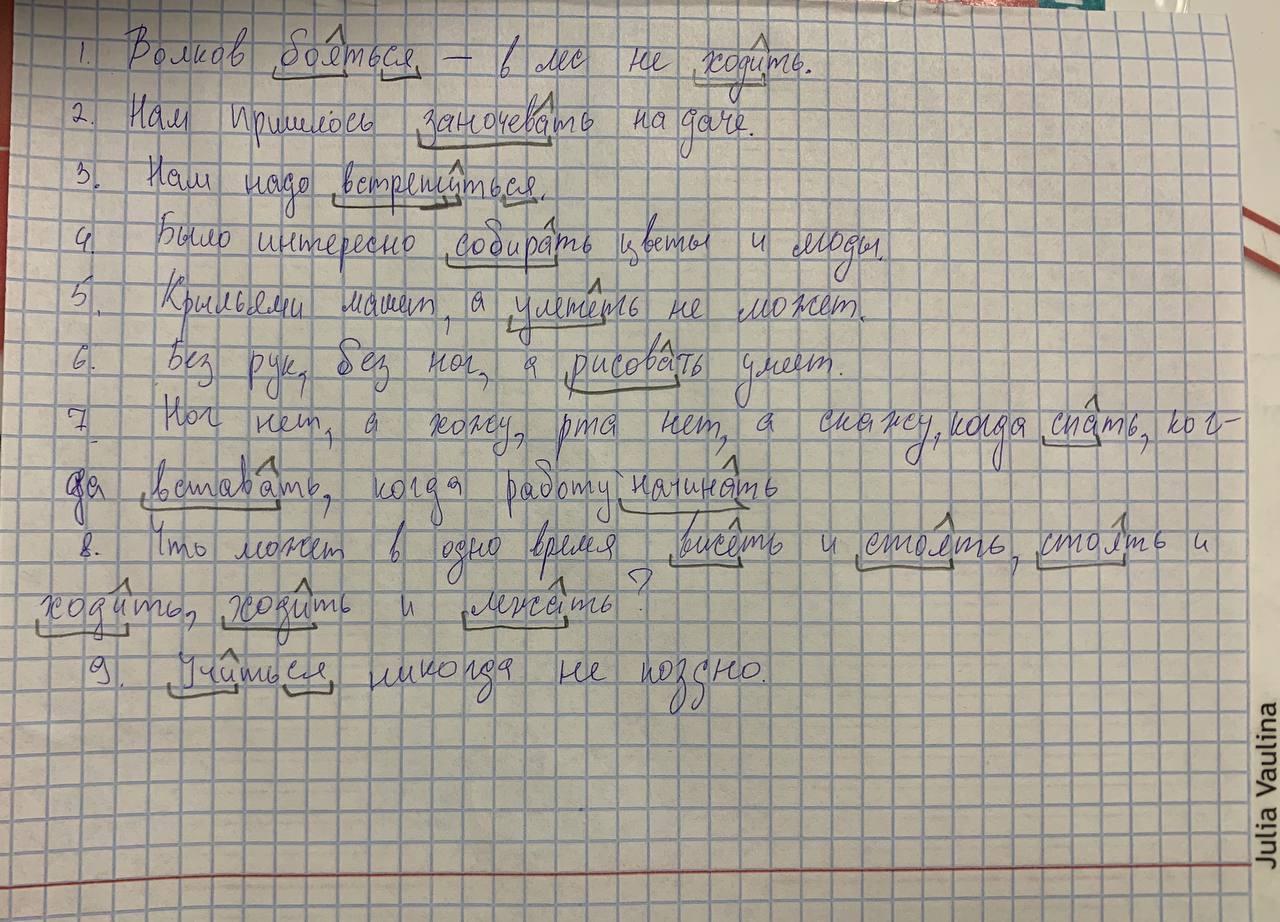 1. Волков бояться — в лес не ходить.
2. Нам пришлось заночевать на даче.
3. Нам надо встретиться.
4. Было интересно собирать цветы и плоды.
5. Крыльями машет, а улететь не может.
6. Без рук, без ног, а рисовать умеет.
7. Ног нет, а хожу, рта нет, а скажу, когда спать, ког-
да вставать, когда работу начинать
8. Что может в одно время висеть и стоять, стоять и
ходить, ходить и лежать?
9. Учиться никогда не поздно.
Julia Vaulina